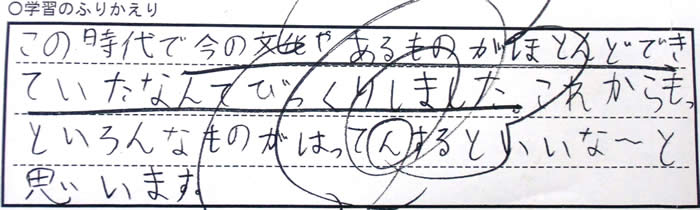 ○学習のふりかえり
この時代で今の文化やあるものがほとんどでき
ていたなんてびっくりしました。これからも
といろんなものがはってんするといいな～と
思います。